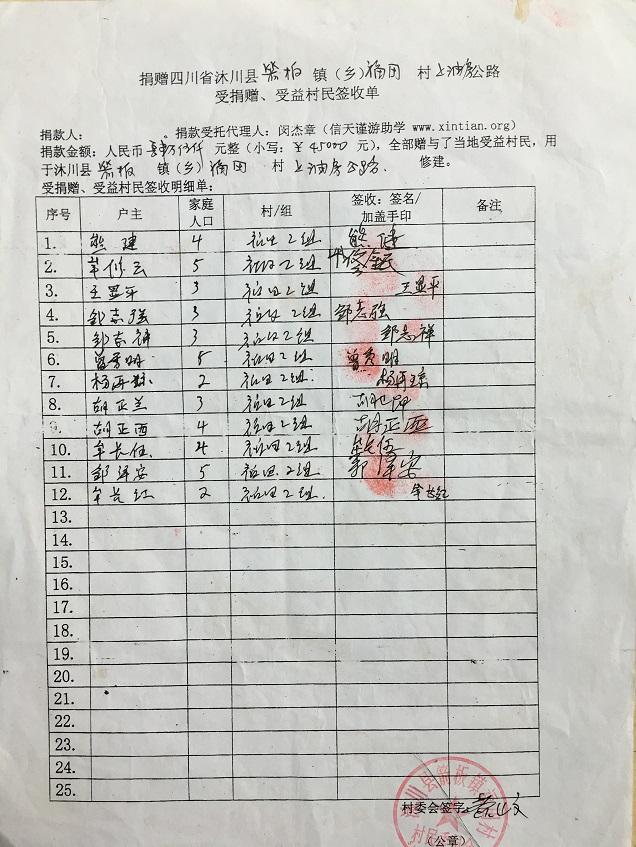 捐赠四川省沐川县 镇（乡）福田 村上油房公路
受捐赠、受益村民签收单
捐款人： 。捐款受托代理人：闵杰章（信天谨游助学 www.xintian.org）
捐款金额：人民币肆万伍仟 元整（小写：￥45000 元），全部赠与了当地受益村民，用
于沐川县 镇（乡）福田 村 上油房公路 修建。
受捐赠、受益村民签收明细单：
序号 户主 家庭人口 村/组 签收：签名/加盖手印 备注
1. 熊建 4 福田2组 熊建
2. 5 福田2组
3. 王显平 3 福田2组 王显平
4. 邹志强 3 福田2组 邹志强
5. 邹志祥 3 福田2组 邹志祥
6. 曾秀明 5 福田2组 曾秀明
7. 杨再琼 2 福田2组 杨再琼
8. 胡正兰 3 福田2组
9. 胡正西 4 福田2组 胡正西
10. 牟长伍 4 福田2组 牟长伍
11. 邹泽安 5 福田2组 邹泽安
12. 牟长红 2 福田2组 牟长红
13.
14.
15.
16.
17.
18.
19.
20.
21.
22.
23.
24.
25.
村委会签字：
（公章）